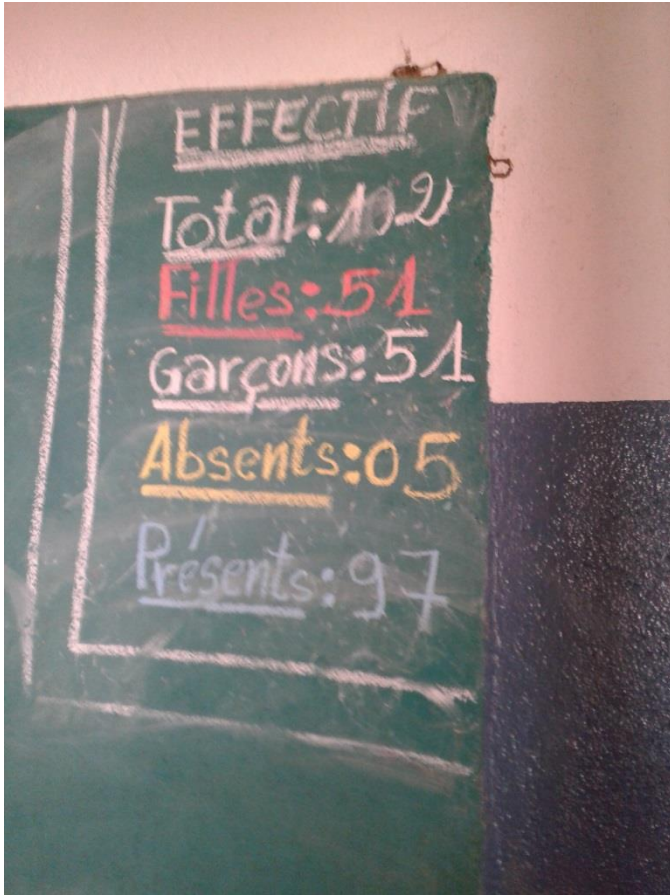 EFFECTIF
Total: 102
Filles: 51
Garçons: 51
Absents: 05
Présents: 97